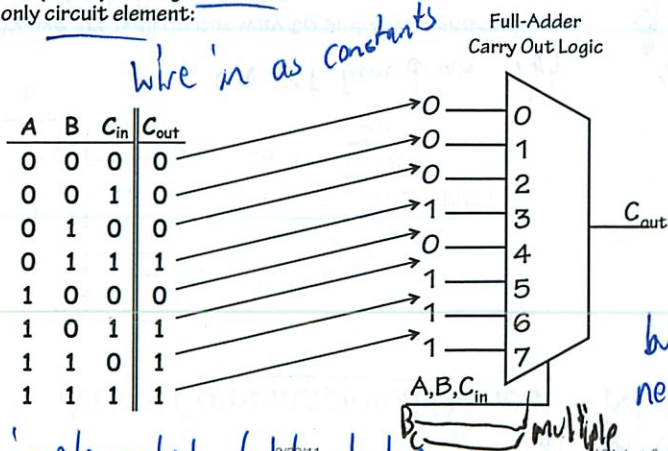 only circuit element:
wire in as constants
Full-Adder
Carry Out Logic
A B Cin Cout
0 0 0 0
0 0 1 0
0 1 0 0
0 1 1 1
1 0 0 0
1 0 1 1
1 1 0 1
1 1 1 1
0 0
0 1
0 2
1 3
0 4
1 5
1 6
1 7
Cout
A,B,Cin
B
C
multiple